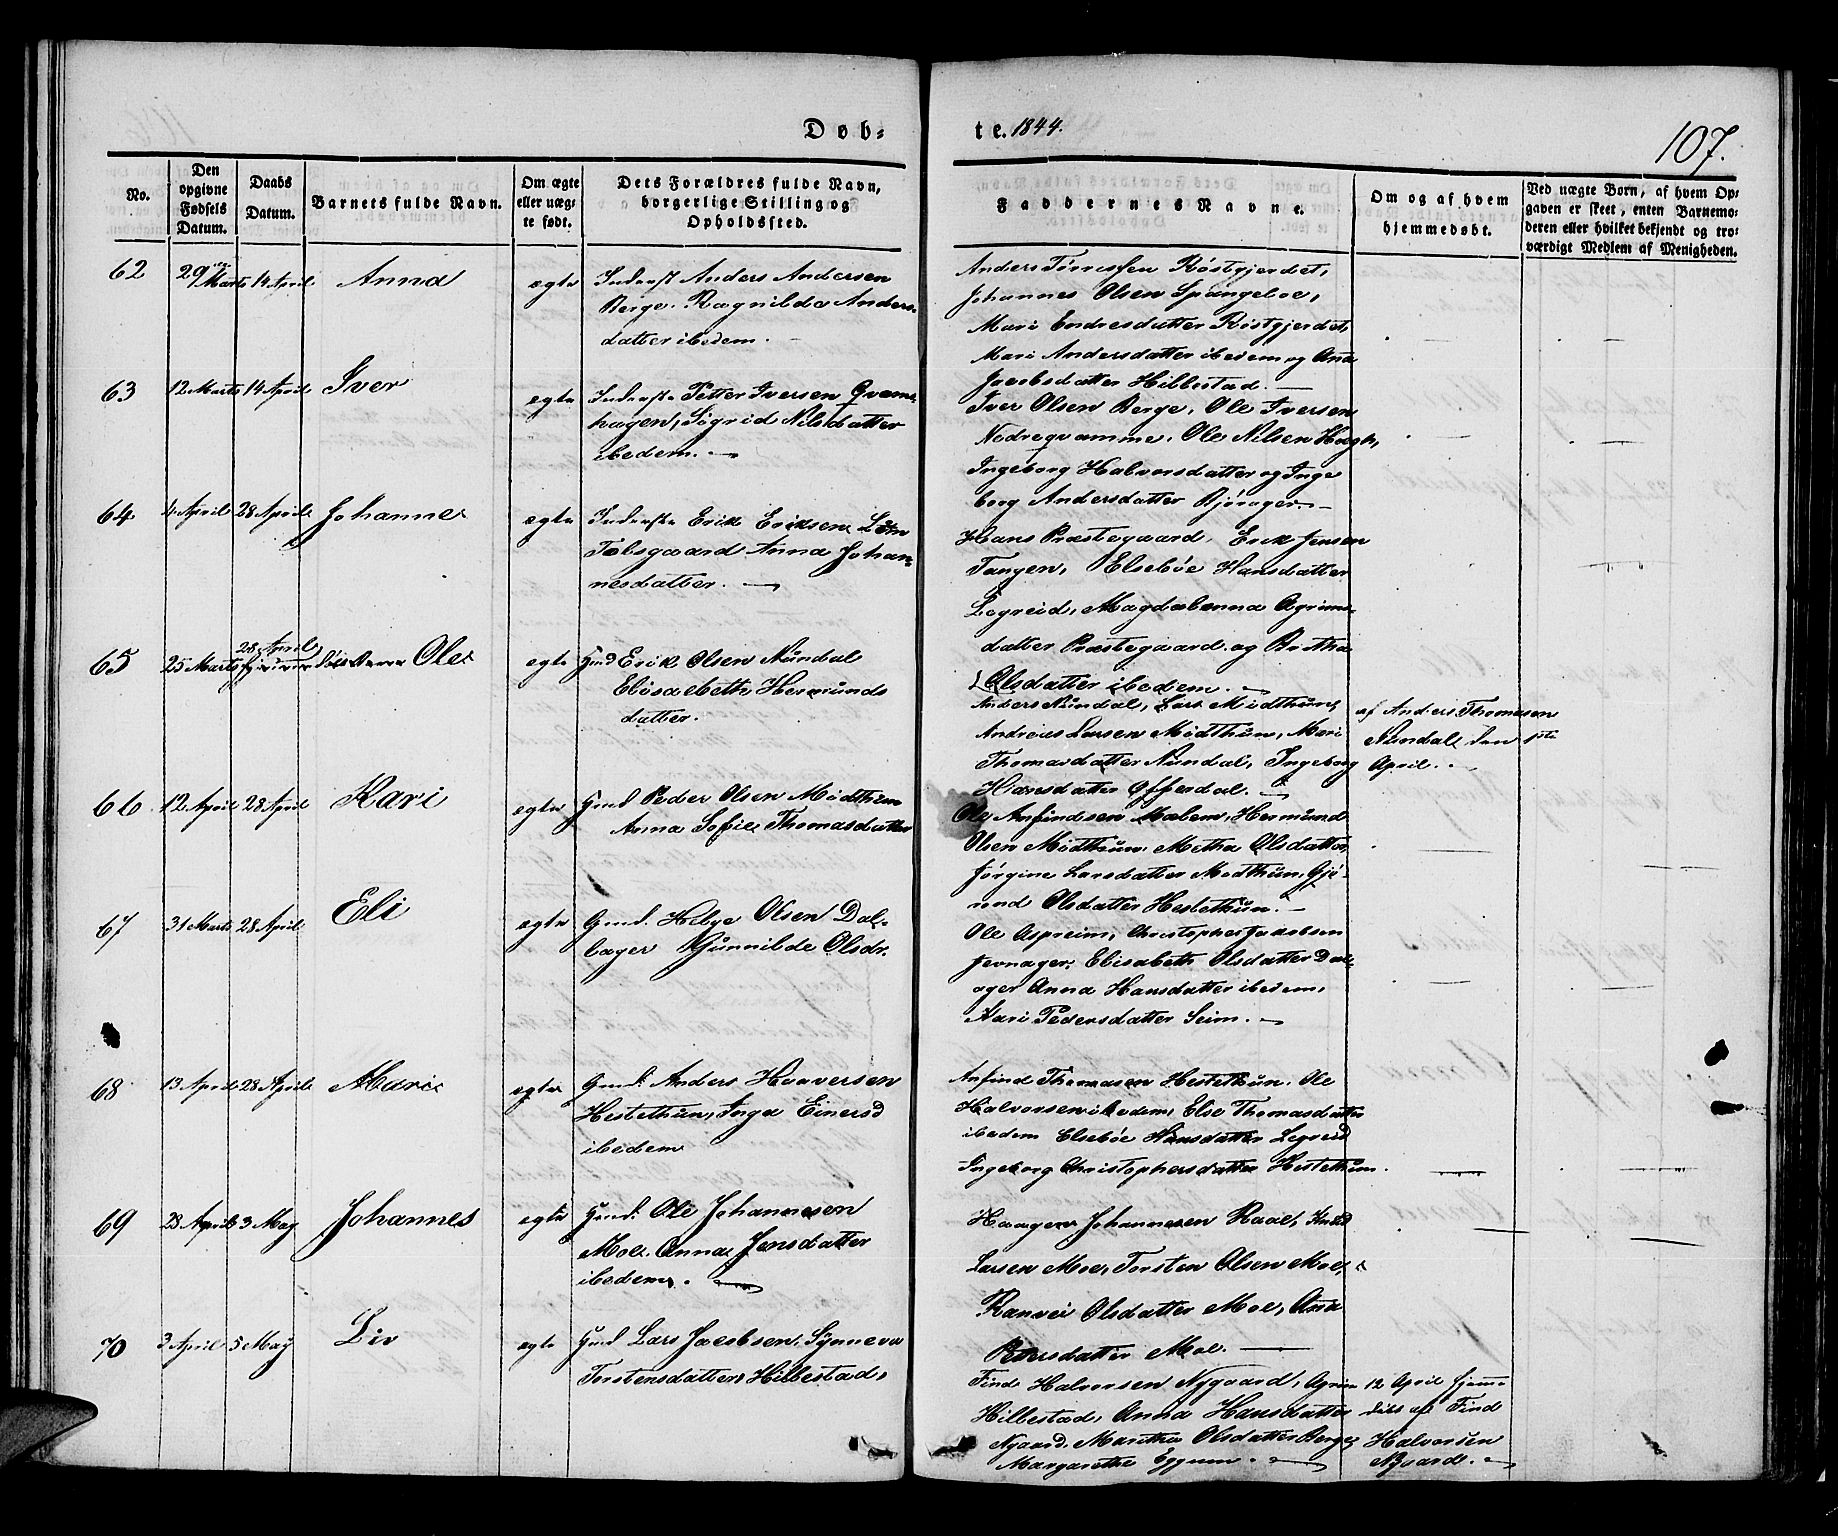 Døb-
te. 1844.
107.
No.
Den opgivne Fødsels Datum.
Daabs Datum.
Barnets fulde Navn.
Om ægte eller uægte født.
Dets Forældres fulde Navn, borgerlige Stilling og Opholdssted.
Faddernes Navne.
Om og af hvem hjemmedøbt.
Ved uægte Børn, af hvem Opgaven er skeet, enten Barnemoderen eller hvilket bekjendt og troværdigt Medlem af Menigheden.
62 29 Marts 14 April Anna ægte
Inderst Anders Andersen
Berge. Ragnilda Anders-
datter ibedem.
Anders Tørresen Røstgjerdet,
Johannes Olsen Spangeloe,
Mari Endresdatter Røstgjerdet,
Mari Andersdatter ibedem og Ana
Jacobsdatter Hillestad.
63 12 Marts 14 April Iver egte
Inderste Petter Iversen Qvams-
hagen, Sigrid Nilsdatter
ibedem.
Iver Olsen Berge, Ole Iversen
Nedreqvamme, Ole Nilsen Haugh,
Ingeborg Halvorsdatter og Inge
borg Andersdatter Bjørager.
64 4 April 28 April Johanne egte
Inderste Erik Eriksen
Anna Johan-
nesdatter.
Hans Præstegaard, Erik Jensen
Tangen, Elseböe Hansdatter
Legreid, Magdalenna Agrims-
datter Præstegaard og Britha
Olsdatter ibedem.
65 25 Marts 28 April Ole egte
Gmd Erik Olsen Nundal
Elisabeth Hermunds
datter.
Anders Nundal, Lars Modthun,
Andreas Larsen Modthun, Mari
Thomasdatter Nundal, Ingeborg
Hansdatter Offerdal.
af Anders Thomesen
Nundal den 1ste
April.
66 12 April 28 April Kari egte
Gmd. Peder Olsen Modthun
Anna Sofie Thomasdatter
Ole Anfindsen Malem, Hermund
Olsen Modthun, Metha Olsdatter,
Jørgine Larsdatter Modthun, Gjø-
rond Olsdatter Hestethun.
67 31 Marts 28 April Eli egte
Gmd. Helge Olsen Dal-
lager Gunnilde Olsdr.
Ole Aspreim, Christopher Jacobsen
Jevnager, Elisabeth Olsdatter Dal-
ager Anna Hansdatter ibedem,
Kari Pedersdatter Seim.
68 13 April 28 April Mari egte
Gmd. Anders Haaversen
Hestethun, Inga Einersd
ibedem
Anfind Thomasen Hestethun, Ole
Halvorsen ibedem, Else Thomasdatter
ibedem Elseböe Hansdatter Legreid
Ingeborg Christophersdatter Hestethun.
69 28 April 3 May Johannes egte
Gmd. Ole Johannesen
Moe. Anna Jensdatter
ibedem.
Haagen Johannesen Raae, Knud
Larsen Moe, Torsten Olsen Moe,
Ranvei Olsdatter Moe, Ana
Petersdatter Moe.
70 3 April 5 May Liv egte
Gmd Lars Jacobsen, Synneva
Torstensdatter Hillestad.
Find Halvorsen Nygaard, Agrim
Hillestad, Anna Hansdatter
Nygaard. Maretha Olsdatter Berge
Margarethe Eggum.
12 April hjem-
døbt af Find
Halvorsen
Nygaard.